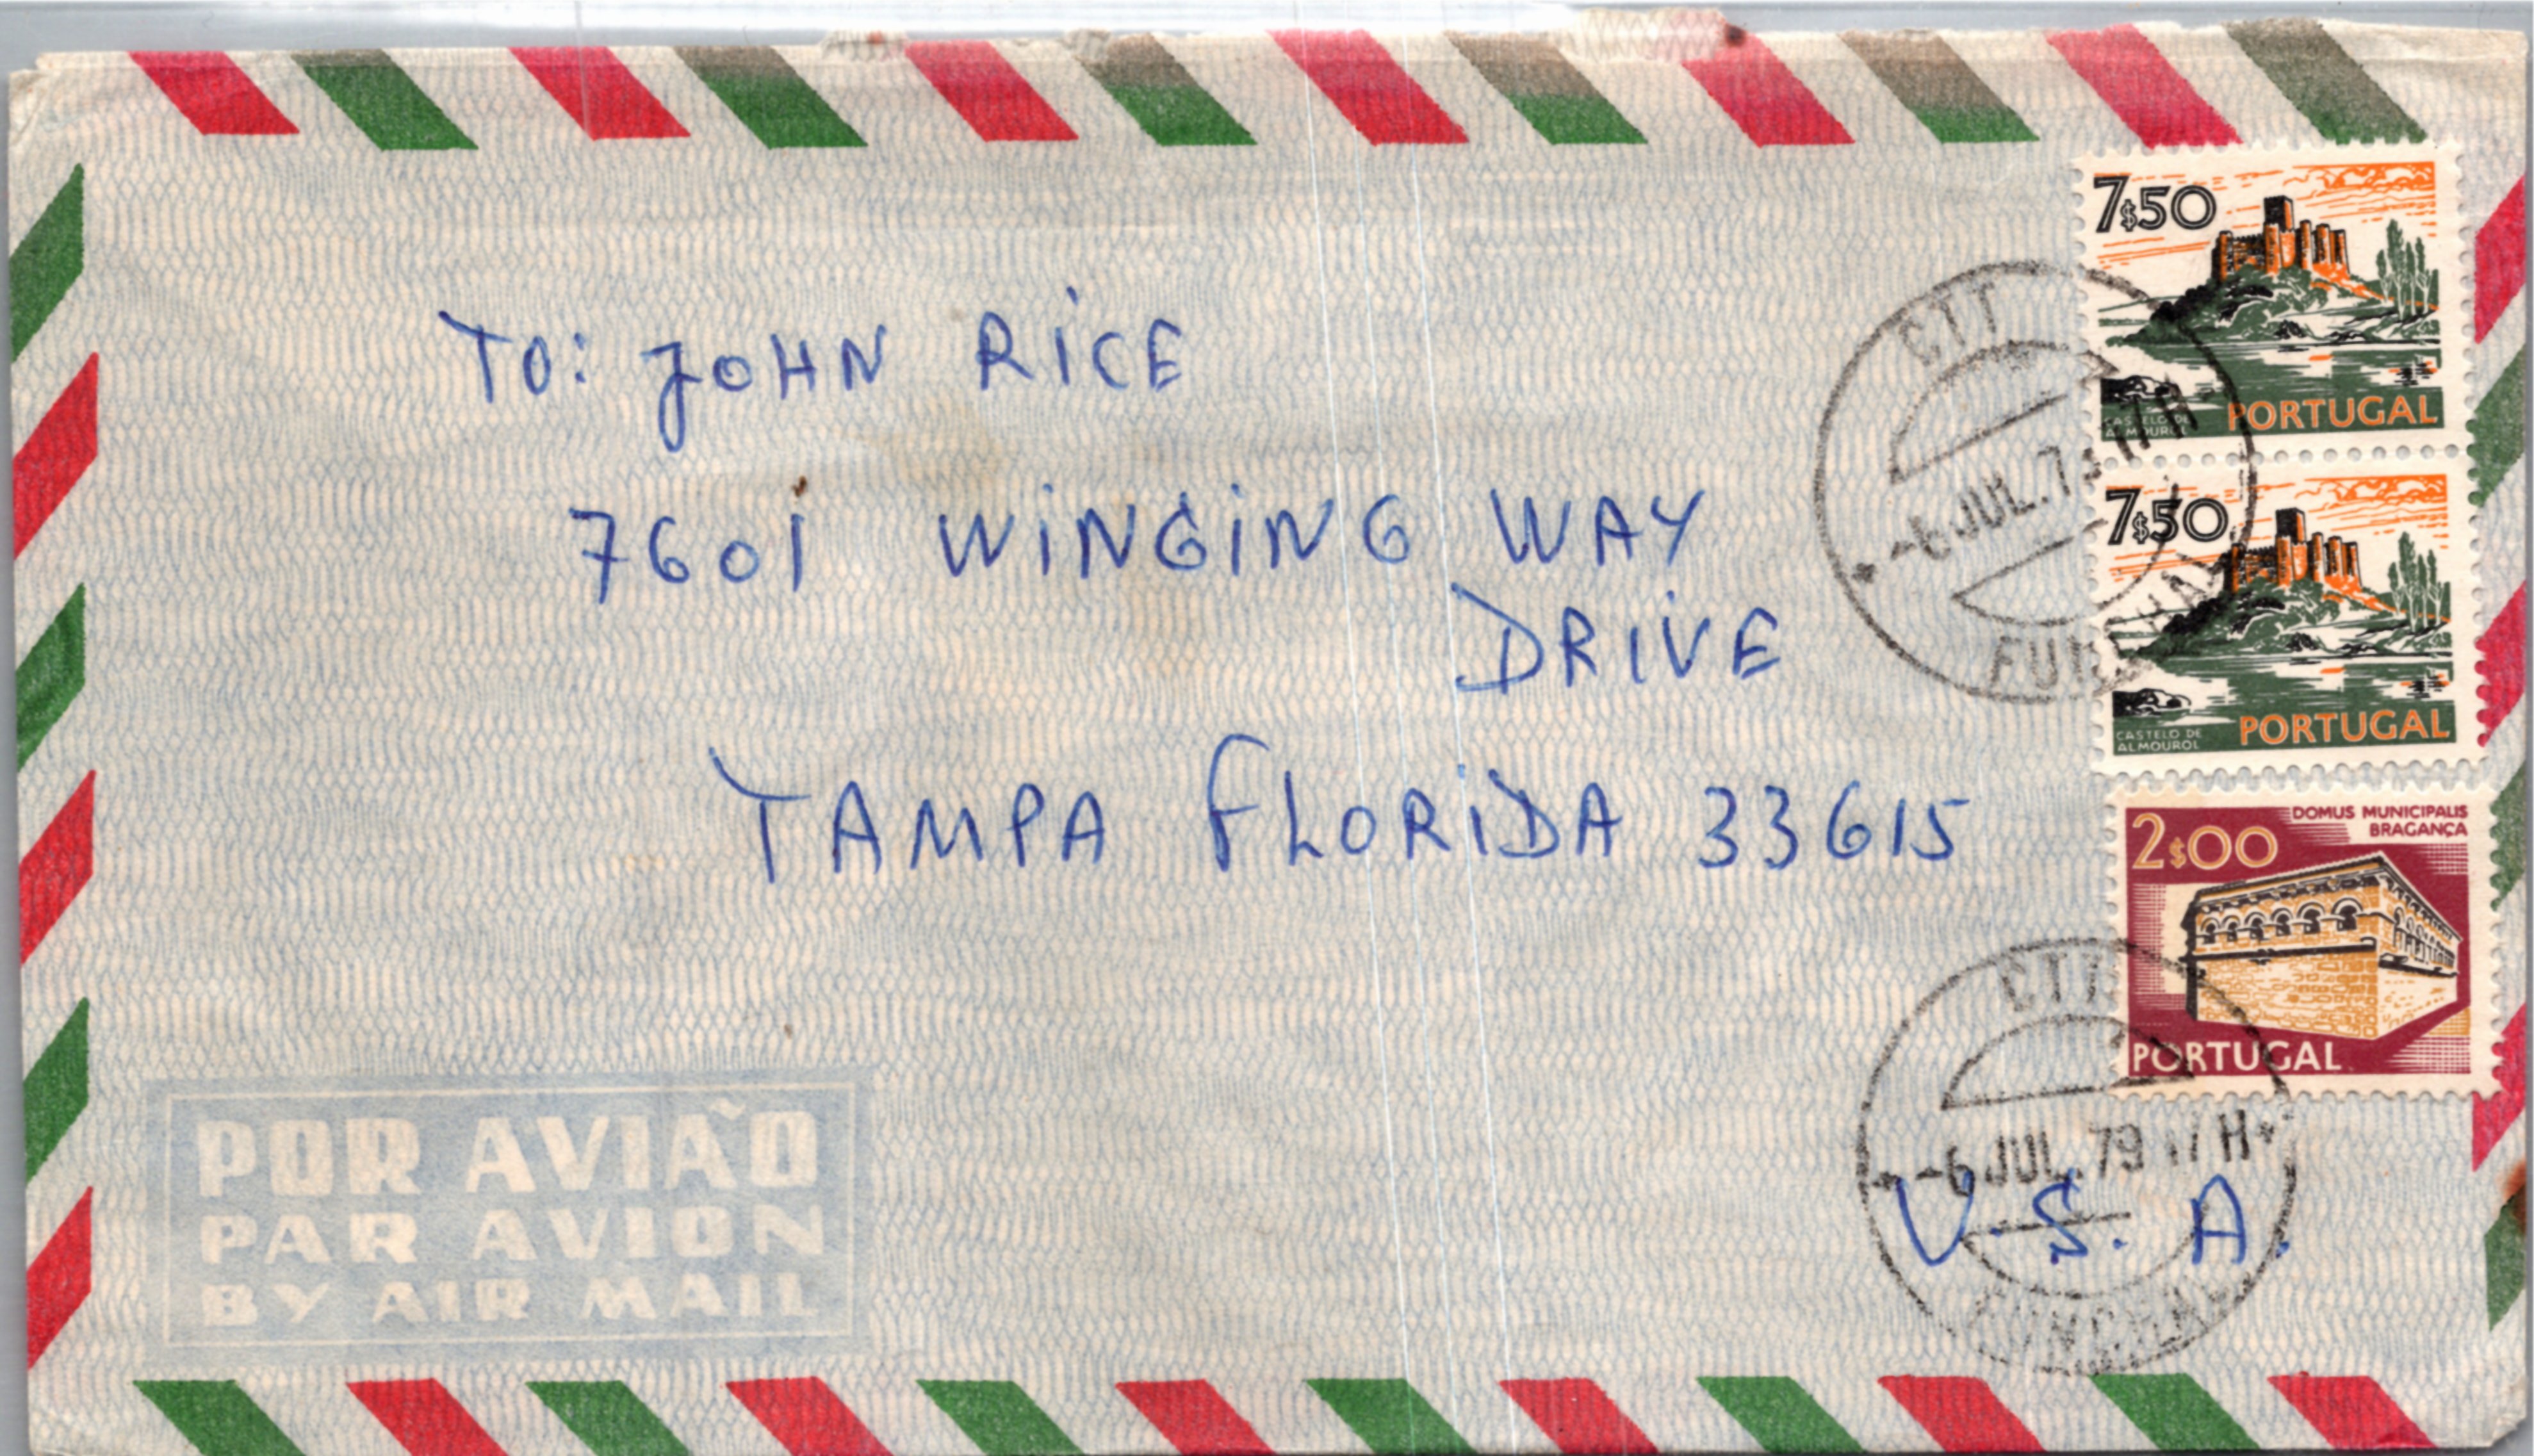 TO: JOHN RICE
7601 WINGING WAY
DRIVE
TAMPA FLORIDA 33615
U.S.A.
7$50
CASTELO DE
ALMOUROL
PORTUGAL
7$50
CASTELO DE
ALMOUROL
PORTUGAL
DOMUS MUNICIPALIS
BRAGANÇA
2$00
PORTUGAL
CTT
-6 JUL. 79 17 H
FUNCHAL
CTT
-6 JUL. 79 17 H
FUNCHAL
POR AVIÃO
PAR AVION
BY AIR MAIL